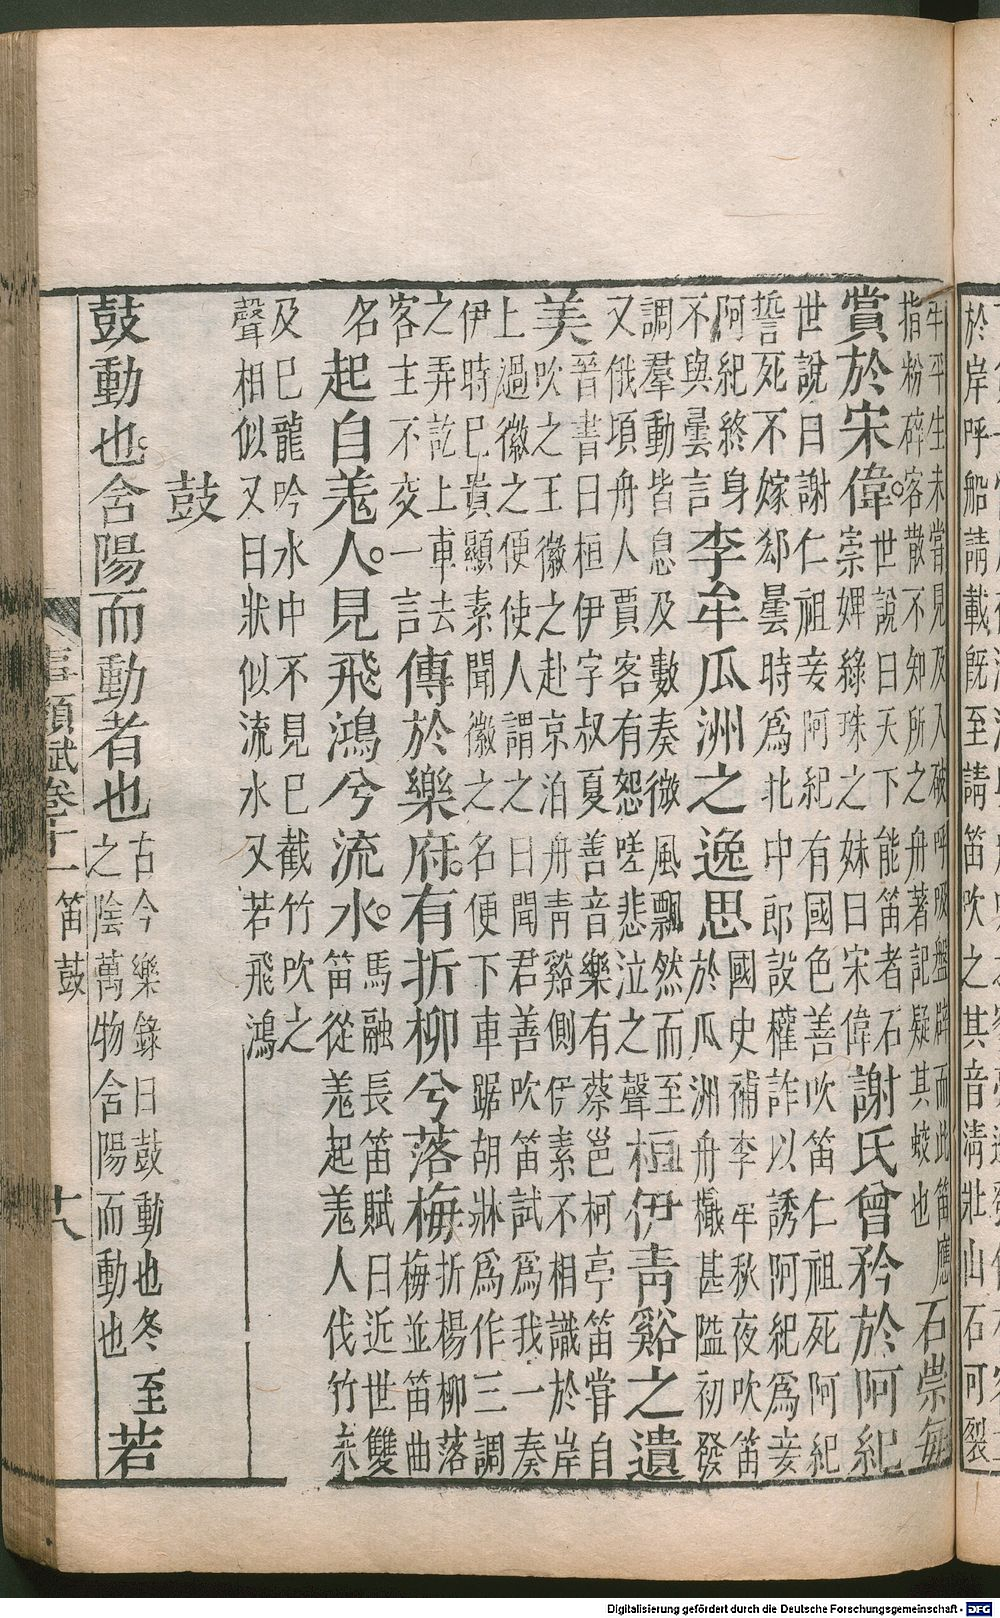 牛平生未嘗見及入破呼吸盤擗而此笛應
指粉碎客散不知所之舟著記疑其蛟也
石崇每
賞於宋偉
世說曰天下能笛者石
崇婢綠珠之妹曰宋偉
謝氏曾矜於阿紀
世說曰謝仁祖妾阿紀有國色善吹笛仁祖死阿紀
誓死不嫁郄曇時為北中郎設權詐以誘阿紀為妾
阿紀終身
不與曇言
李牟瓜洲之逸思
國史補李牟秋夜吹笛
於瓜洲舟檝甚隘初發
調羣動皆息及數奏微風飄然而至
又俄頃舟人賈客有怨嗟悲泣之聲
桓伊青谿之遺
美
晉書曰桓伊字叔夏善音樂有蔡邕柯亭笛嘗自
吹之王徽之赴京泊舟青谿側伊素不相識於岸
上過徽之便使人謂之曰聞君善吹笛試為我一奏
伊時已貴顯素聞徽之名便下車踞胡牀為作三調
之弄訖上車去
客主不交一言
傳於樂府有折柳兮落梅
折楊柳落
梅並笛曲
名
起自羗人見飛鴻兮流水
馬融長笛賦曰近世雙
笛從羗起羗人伐竹未
及已龍吟水中不見已截竹吹之
聲相似又曰狀似流水又若飛鴻
鼓
鼓動也含陽而動者也
古今樂錄曰鼓動也冬至
之陰萬物含陽而動也
若
事類賦卷十一
笛 鼓
十八
於岸呼船請載旣至請笛吹之其音清壯山石可裂
Digitalisierung gefördert durch die Deutsche Forschungsgemeinschaft - DFG